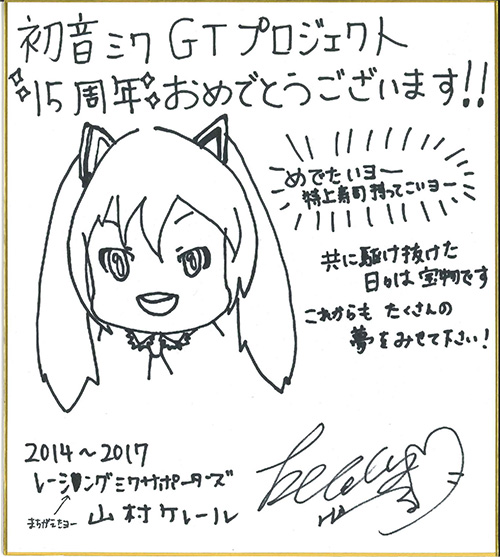 初音ミク GTプロジェクト
15周年おめでとうございます!!
めでたいヨー
特上寿司持ってこいヨー
共に駆け抜けた
日々は宝物です
これからも たくさんの
夢をみせて下さい!
2014～2017
レーシングミクサポーターズ
まちがえたヨー
山村ケレール